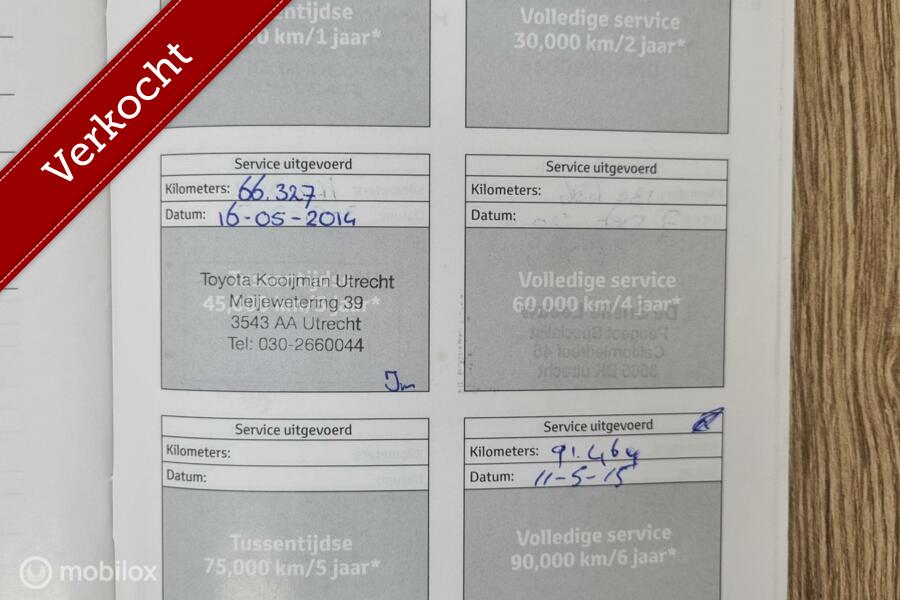 Verkocht
0 km/1 jaar*
Volledige service
30,000 km/2 jaar*
Service uitgevoerd
Kilometers: 66.327
Datum: 16-05-2014
Tussentijdse
45,000 km/3 jaar*
Toyota Kooijman Utrecht
Meijewetering 39
3543 AA Utrecht
Tel: 030-2660044
Service uitgevoerd
Kilometers:
Datum:
Volledige service
60,000 km/4 jaar*
Service uitgevoerd
Kilometers:
Datum:
Tussentijdse
75,000 km/5 jaar*
Service uitgevoerd
Kilometers: 91.464
Datum: 11-5-15
Volledige service
90,000 km/6 jaar*
mobilox